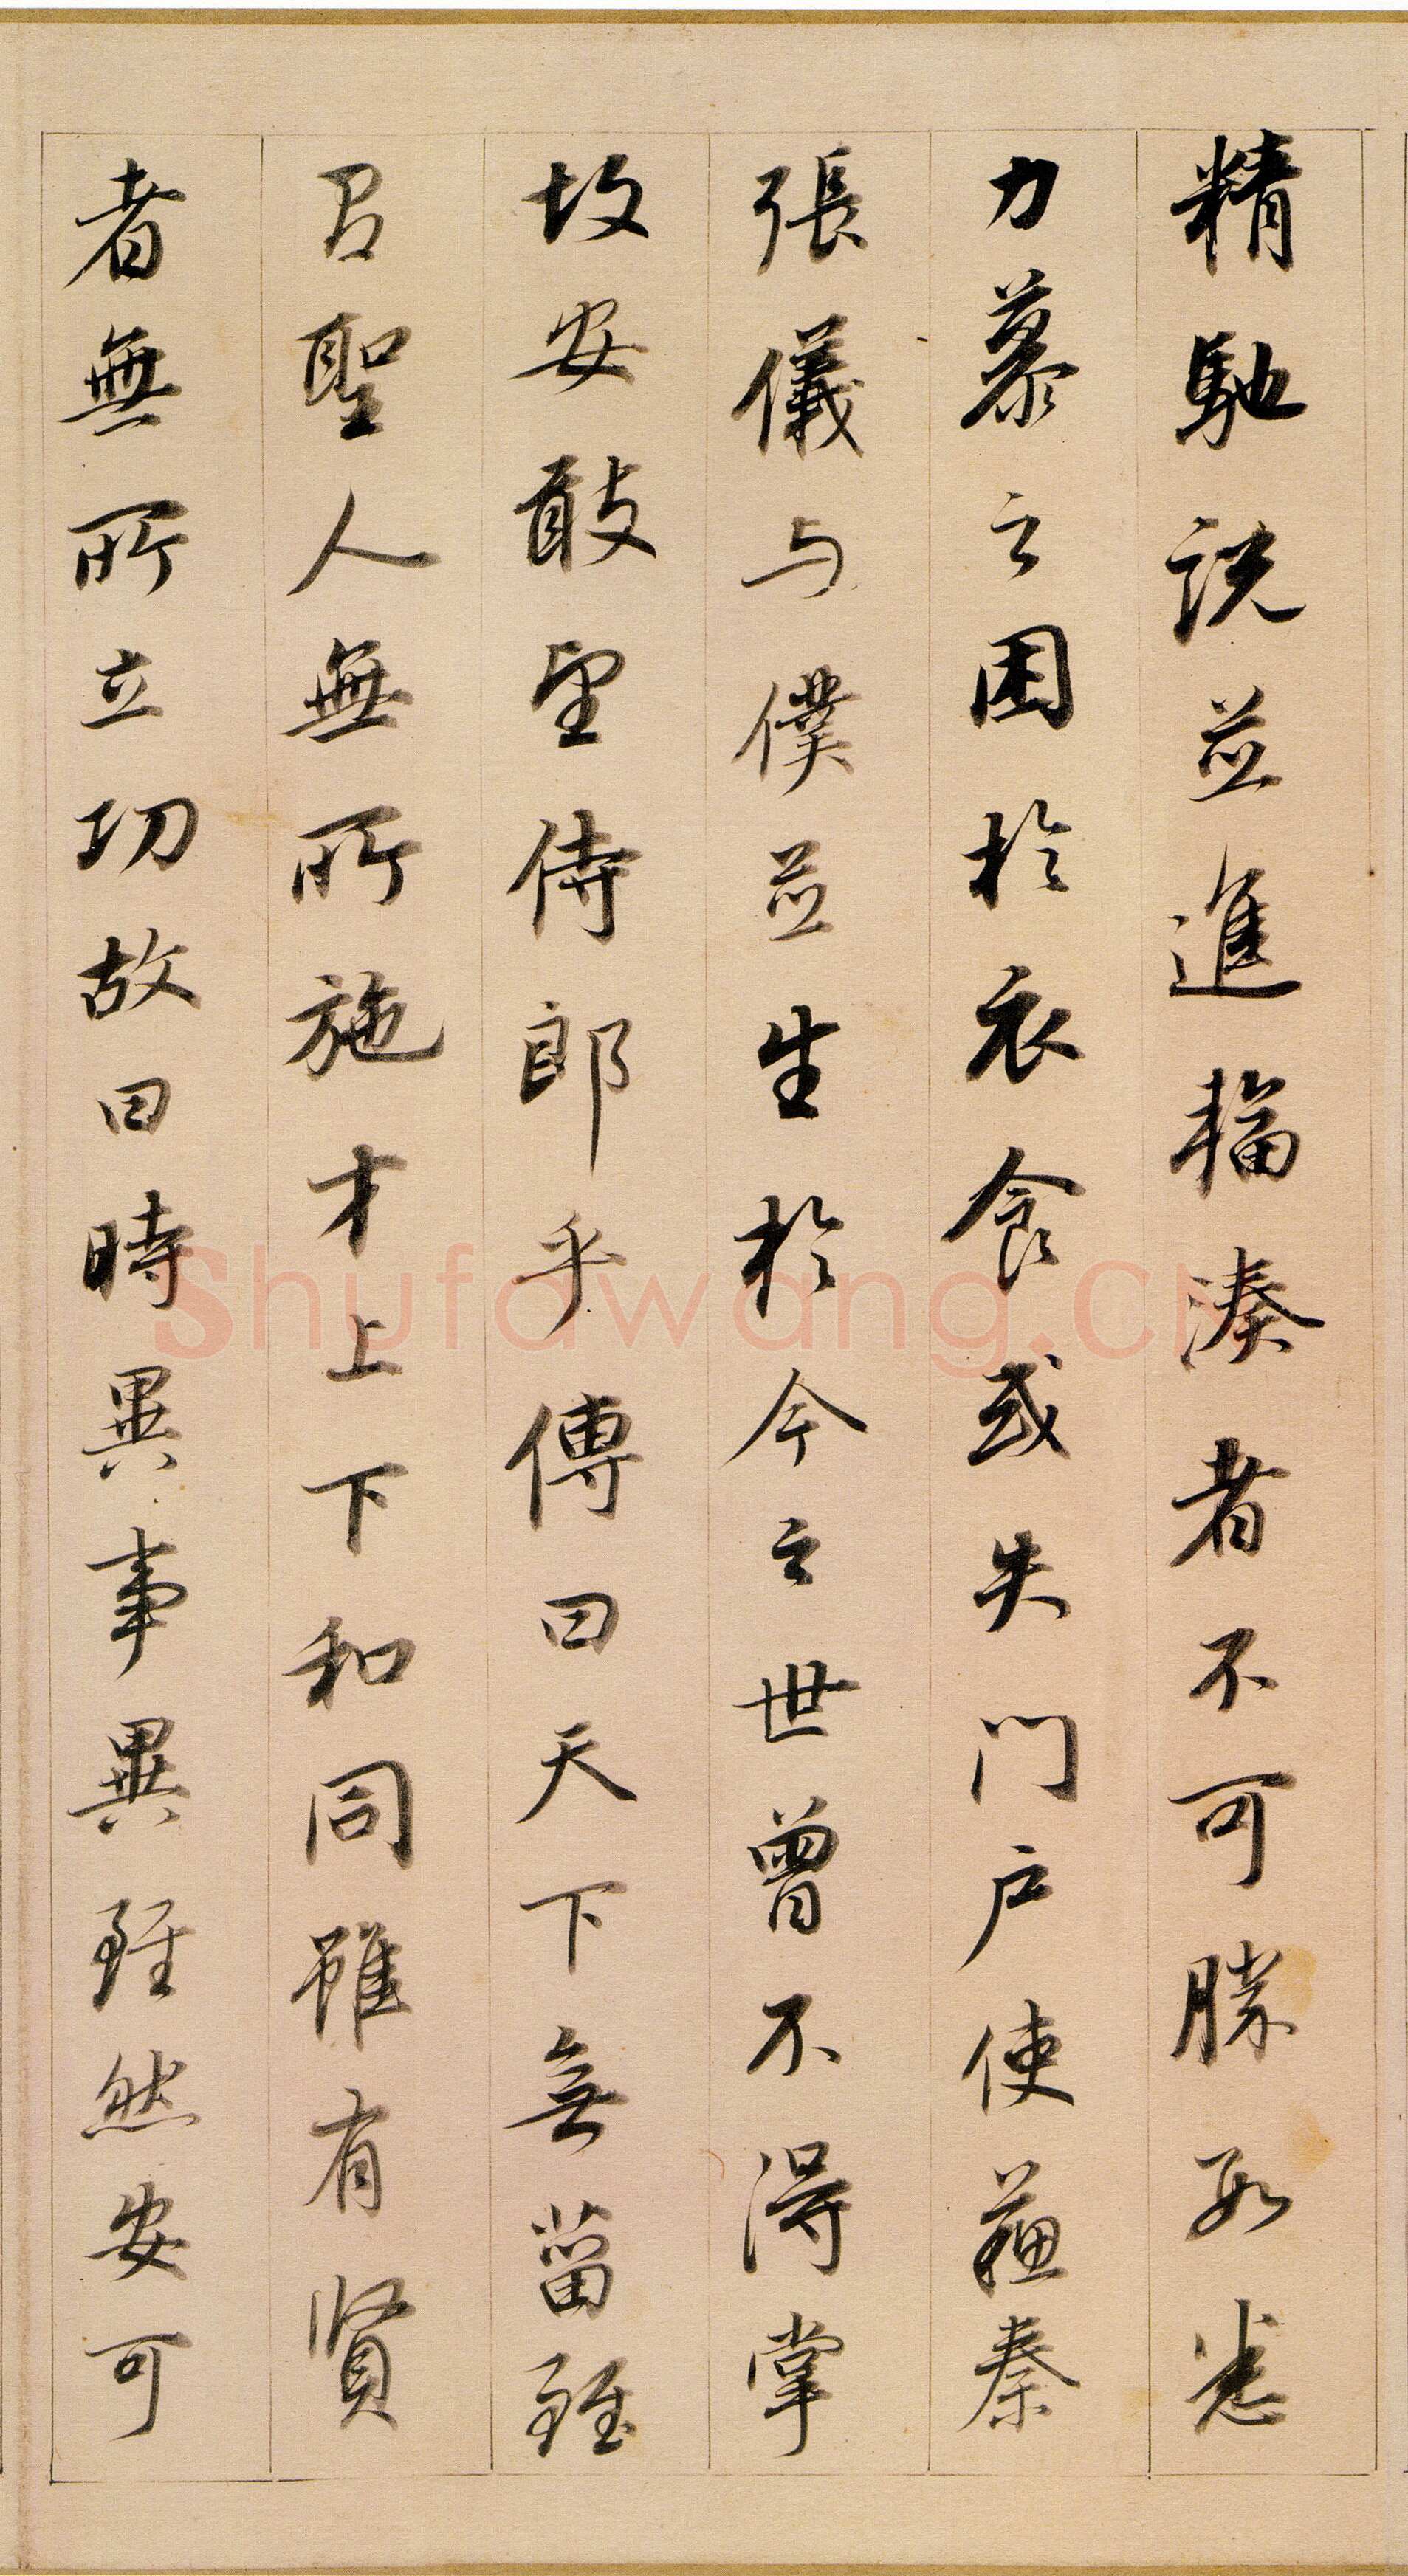 精馳説並進輻湊者不可勝數悉
力慕之困於衣食或失門戶使蘇秦
張儀与僕並生於今之世曾不得掌
故安敢望侍郎乎傳曰天下無菑雖
有聖人無所施才上下和同雖有賢
者無所立功故曰時異事異雖然安可
Shufawang.CN